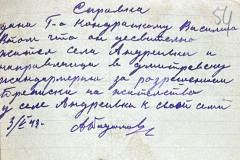 54
Справка
дана Г-ну Кондрацкому Василию
в том что он действительно
житель села Андреевки и
направляется в Димитревску
жандармерию за разрешением
прописки на жительство
у селе Андреевки к своей семи
3/II 43 г.